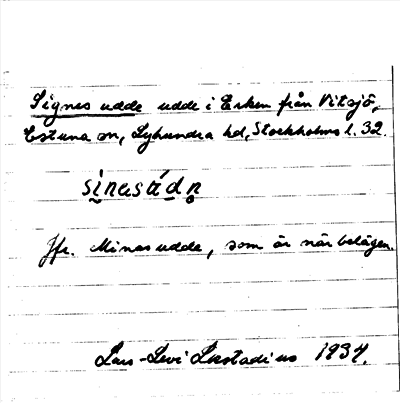 Signes udde udde i Erken från Vitsjö,
Estuna sn, Lyhundra hd, Stockholms l. 32.
sìnasúdn
Jfr. Minas udde, som är närbelägen.
Lars-Levi Læstadius 1934.